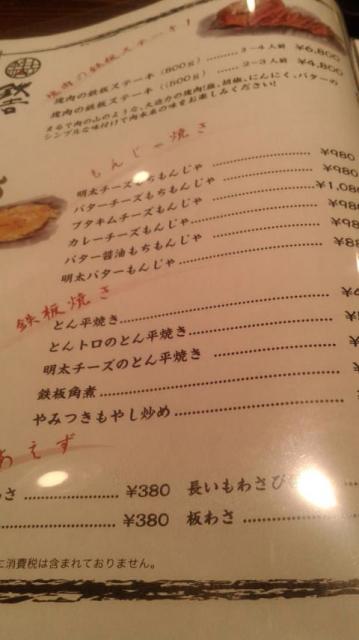 塊肉の鉄板ステーキ!
塊肉の鉄板ステーキ(800g)……………3〜4人前 ¥6,800
塊肉の鉄板ステーキ(500g)……………2〜3人前 ¥4,800
まるで肉の山のような、大迫力の塊肉!塩、胡椒、にんにく、バターの
シンプルな味付けで肉本来の味をお楽しみください!
もんじゃ焼き
明太チーズもちもんじゃ ¥980
バターチーズもちもんじゃ ¥980
ブタキムチーズもんじゃ ¥1,08
カレーチーズもんじゃ ¥98
バター醤油もちもんじゃ ¥98
明太バターもんじゃ ¥88
鉄板焼き
とん平焼き
とんトロのとん平焼き
明太チーズのとん平焼き
鉄板角煮
やみつきもやし炒め
あえず
さ ¥380 長いもわさび
¥380 板わさ
に消費税は含まれておりません。